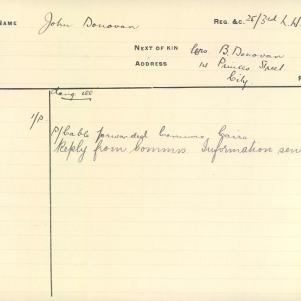 NAME John Donovan REG. &C. 25/3rd L.H
NEXT OF KIN Mrs B. Donovan
ADDRESS 14 Princes Street
City
Dang ill
P/Cable forwarded Commrs, Cairo
Reply from Commrs. Information sen